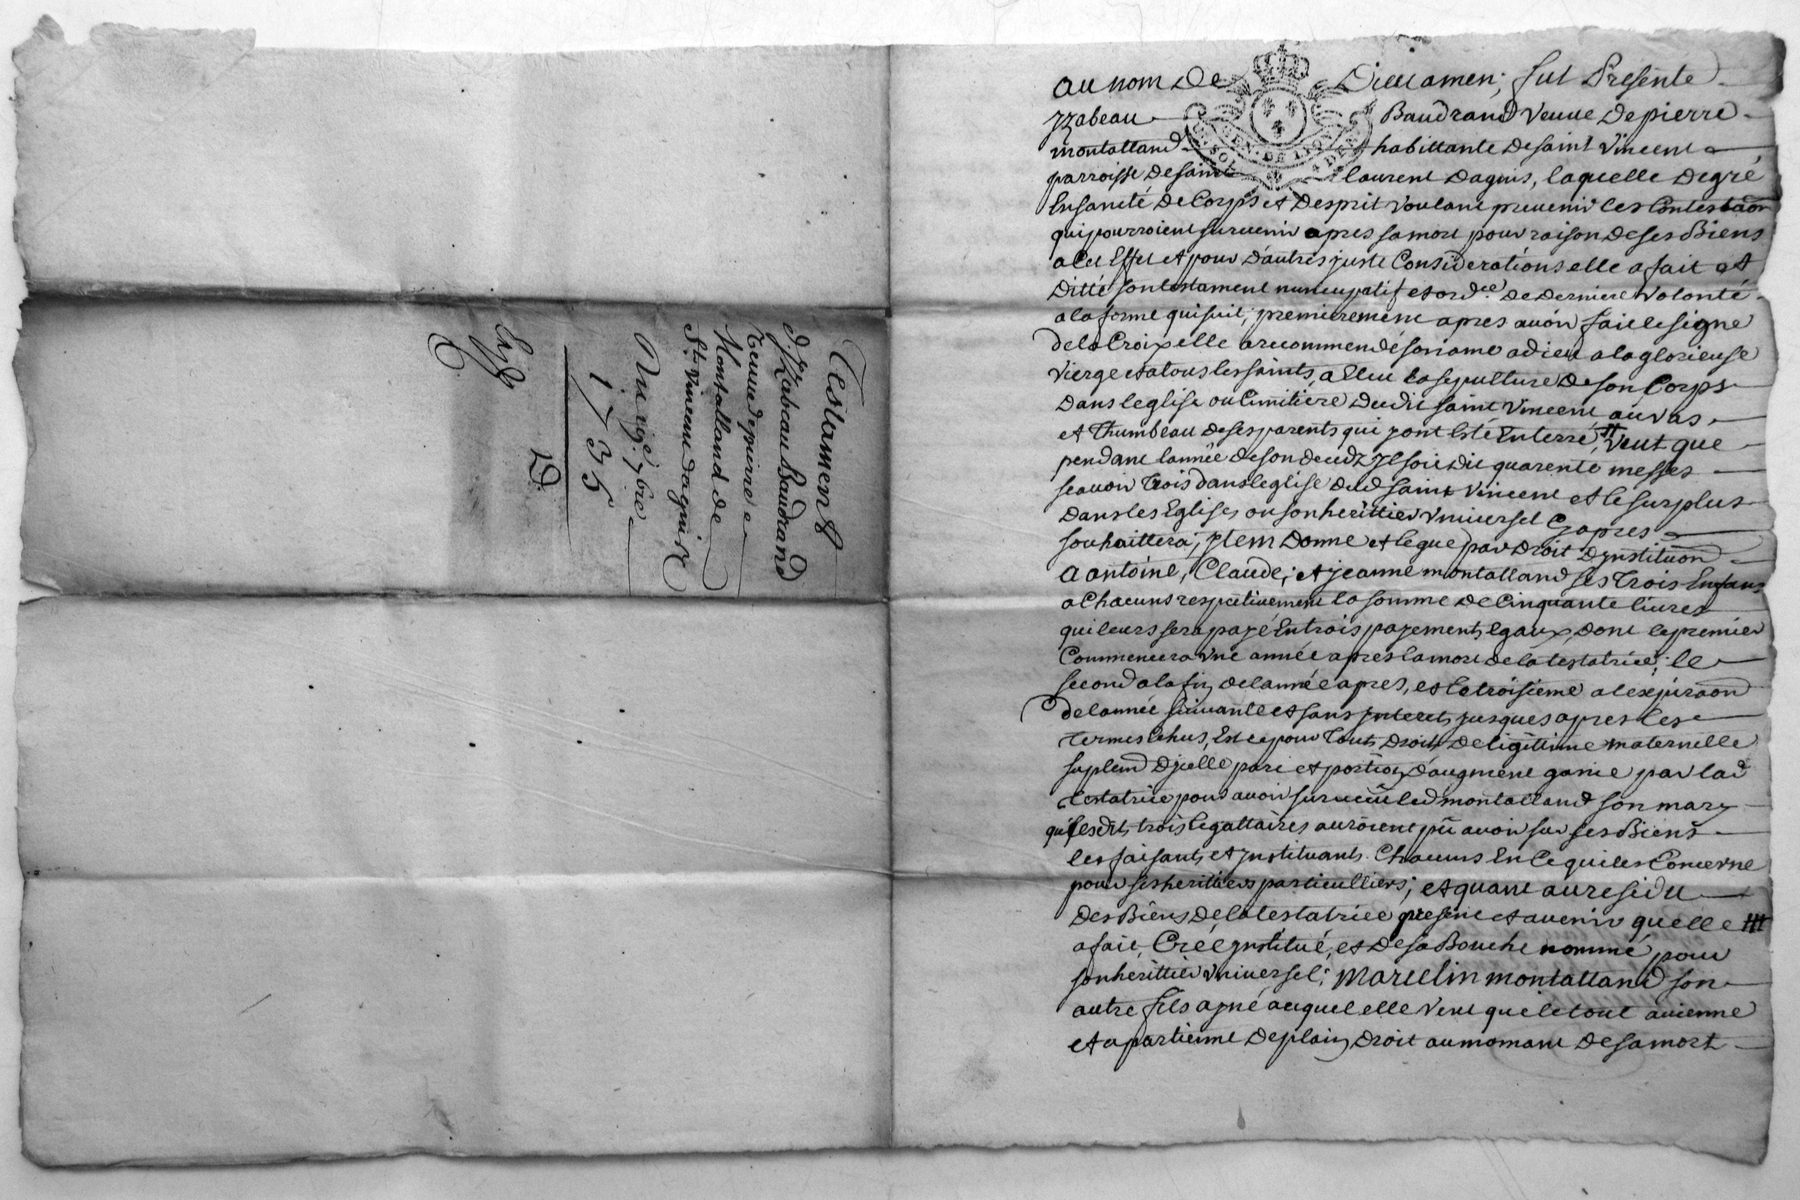 Testament
d'Yzabeau Baudrand
veuve de pierre
Montalland de
St. vincent dagnis
Du 19e. 7bre
1735
D
au nom De Dieu amen; fut Presente
yzabeau Baudrand veuve De pierre
montalland habittante De saint vincent
parroisse De saint laurent Dagnis, laquelle De gré
En sancté De Corps et Desprit voulant prevenir les Contestaon
qui pourroient survenir apres sa mort pour raison De ses Biens
a Cet Effet et pour Dautres juste Considerations elle a fait et
Ditté son testament nuncupatif et ordce. De Derniere volonté
a la forme qui suit; premierement apres avoir fait le signe
de la Croix elle a recommendé son ame a dieu a la glorieuse
vierge et a tous les saints, a Elu la sepulture De son Corps
Dans leglise ou Cimitiere Dudit saint vincent au vas
et Thumbeau De ses parents qui y ont Esté Enterré, veut que
pendant lannée De son decedz yl soit Dit quarente messes
scavoir Trois dans leglise dud saint vincent et le surplus
Dans les Eglises ou son herittier universel Cy apres
souhaittera; ytem Donne et legue par Droit Dynstituon
a antoine, Claude; et jeanne montalland ses Trois Enfans
a Chacuns respectivement la somme De Cinquante livres
qui leurs sera payé En trois payements egaux, Dont le premier
Commencera une année apres la mort de la testatrice; le
second a la fin de lannée apres, et le troisieme a lexpiraon
de lannée suivante et sans ynterets jusques apres les
termes Echus, Et ce pour Touts Droits De legitime maternelle
suplemd Dycelle part et portion Daugment gagné par lad
testatrice pour avoir survecu led montalland son mary
qu lesdits trois legattaires auroient pû avoir sur ses Biens
les faisants et ynstituants Chacuns En Ce qui les Concerne
pour ses herittiers particulliers; et quant au residu
Des Biens De la testatrice present et avenir quelle
a fait, Créé ynstitué, et De sa Bouche nommé pour
son herittier universel; Marcelin montalland son
autre fils ayné auquel elle veut que le tout avienne
et apartienne De plain Droit au momant De sa mort